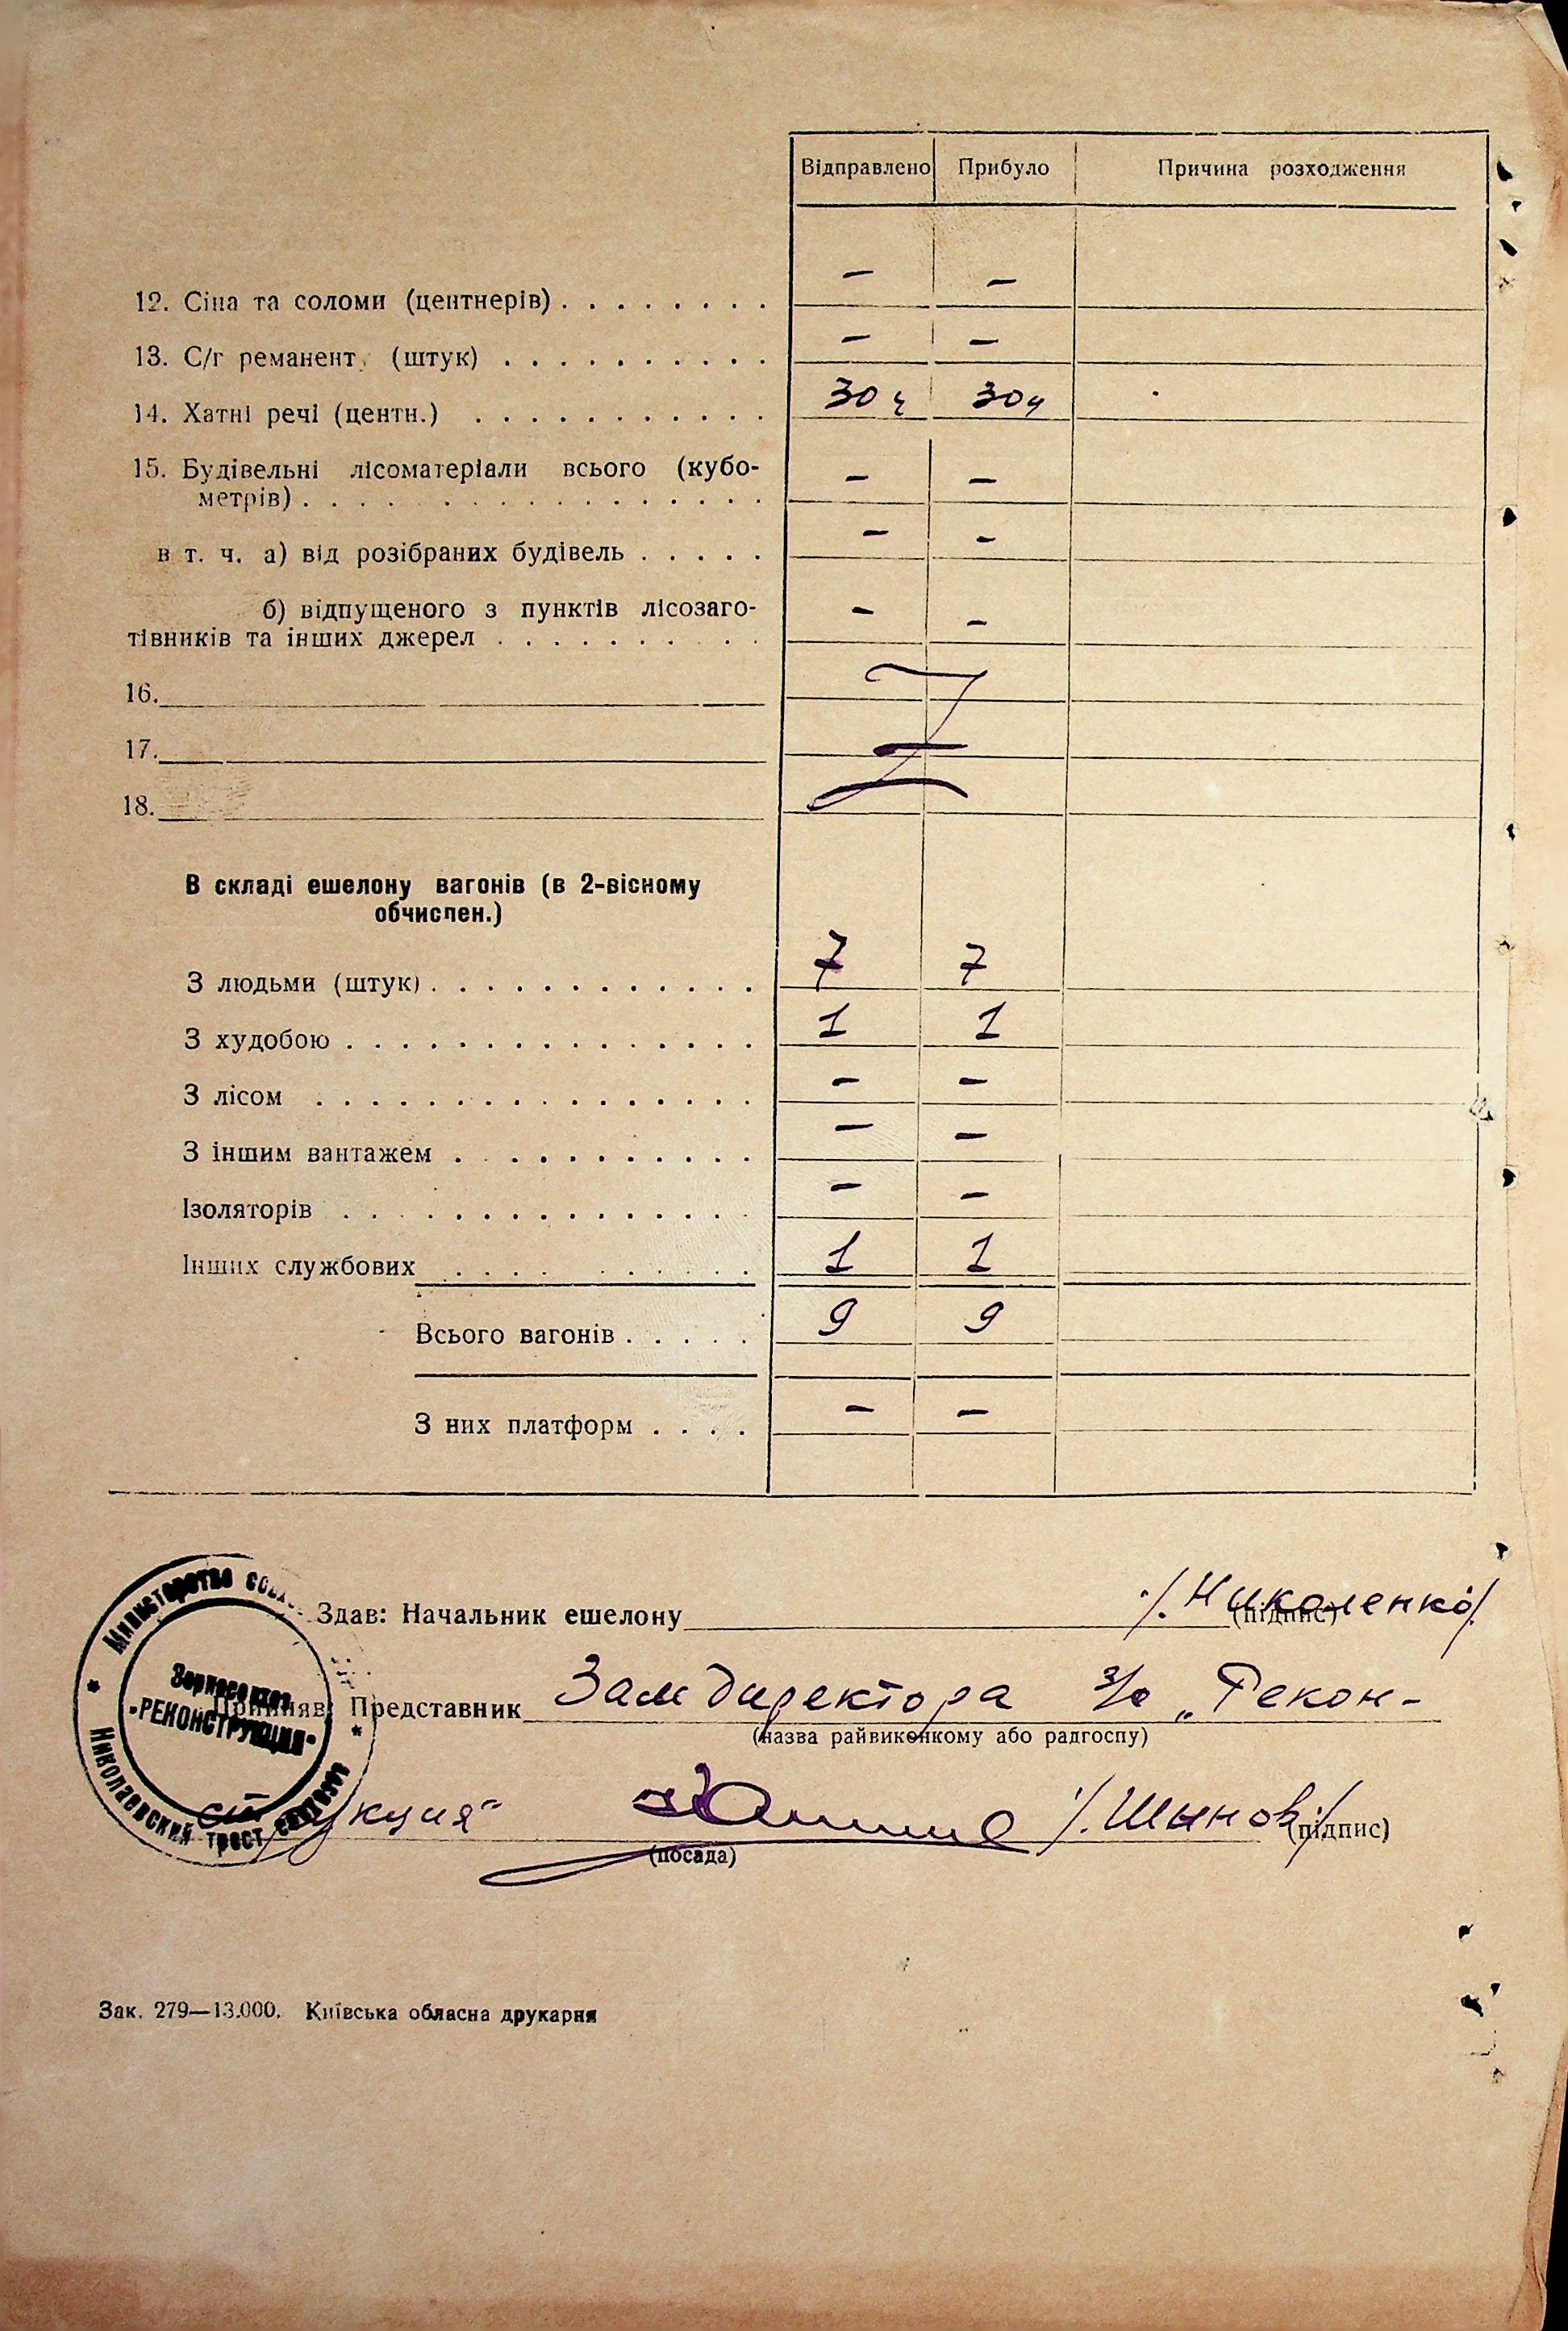 Відправлено Прибуло Причина розходження
12. Сіна та соломи (центнерів) . . . . . . . . — —
13. С/г реманент, (штук) . . . . . . . . . . — —
14. Хатні речі (центн.) . . . . . . . . . . . 30 ц 30 ц
15. Будівельні лісоматеріали всього (кубо-
метрів) . . . . . . . . . . . . . . . . — —
в т. ч. а) від розібраних будівель . . . . . — —
б) відпущеного з пунктів лісозаго-
тівників та інших джерел . . . . . . . . . — —
16.
17.
18.
В складі ешелону вагонів (в 2-вісному
обчислен.)
З людьми (штук) . . . . . . . . . . . . 7 7
З худобою . . . . . . . . . . . . . . . 1 1
З лісом . . . . . . . . . . . . . . . . — —
З іншим вантажем . . . . . . . . . . . — —
Ізоляторів . . . . . . . . . . . . . . . — —
Інших службових . . . . . . . . . . 1 1
Всього вагонів . . . . . 9 9
З них платформ . . . . — —
Министерство
Здав: Начальник ешелону /. Николенко/
(підпис)
Зерносовхоз
«РЕКОНСТРУКЦИЯ»
Николаевский трест
Прийняв: Представник Зам директора з/с „Рекон-
(назва райвиконкому або радгоспу)
струкция“ /. Шинов/ (підпис)
(посада)
Зак. 279—13.000. Київська обласна друкарня